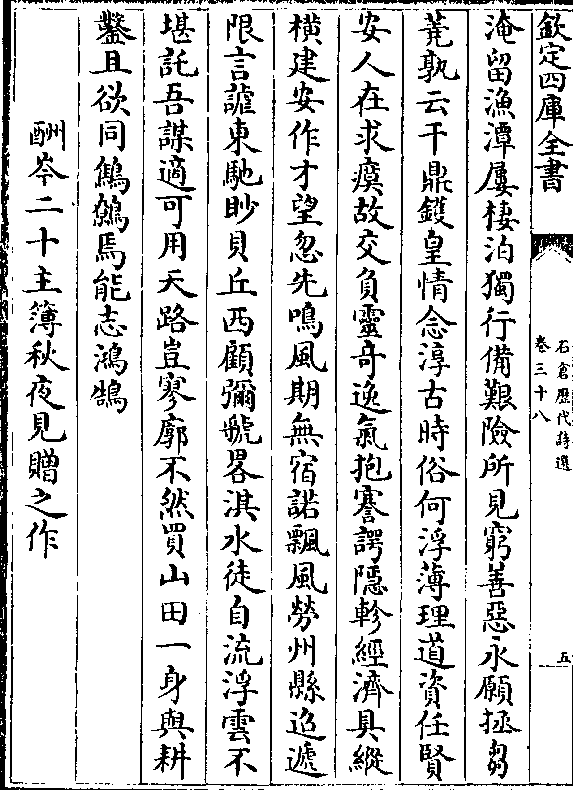 欽定四庫全書
石倉歷代詩選
卷三十八
五
淹留漁潭屢棲泊獨行備艱險所見窮善惡永願拯芻
蕘孰云干鼎鑊皇情念淳古時俗何浮薄理道資任賢
安人在求瘼故交負靈奇逸氣抱謇諤隱軫經濟具縱
橫建安作才望忽先鳴風期無宿諾飄風勞州縣迢遞
限言謔東馳眇貝丘西顧彌虢畧淇水徒自流浮雲不
堪託吾謀適可用天路豈寥廓不然買山田一身與耕
鑿且欲同鷦鷯焉能志鴻鵠
酬岑二十主簿秋夜見贈之作